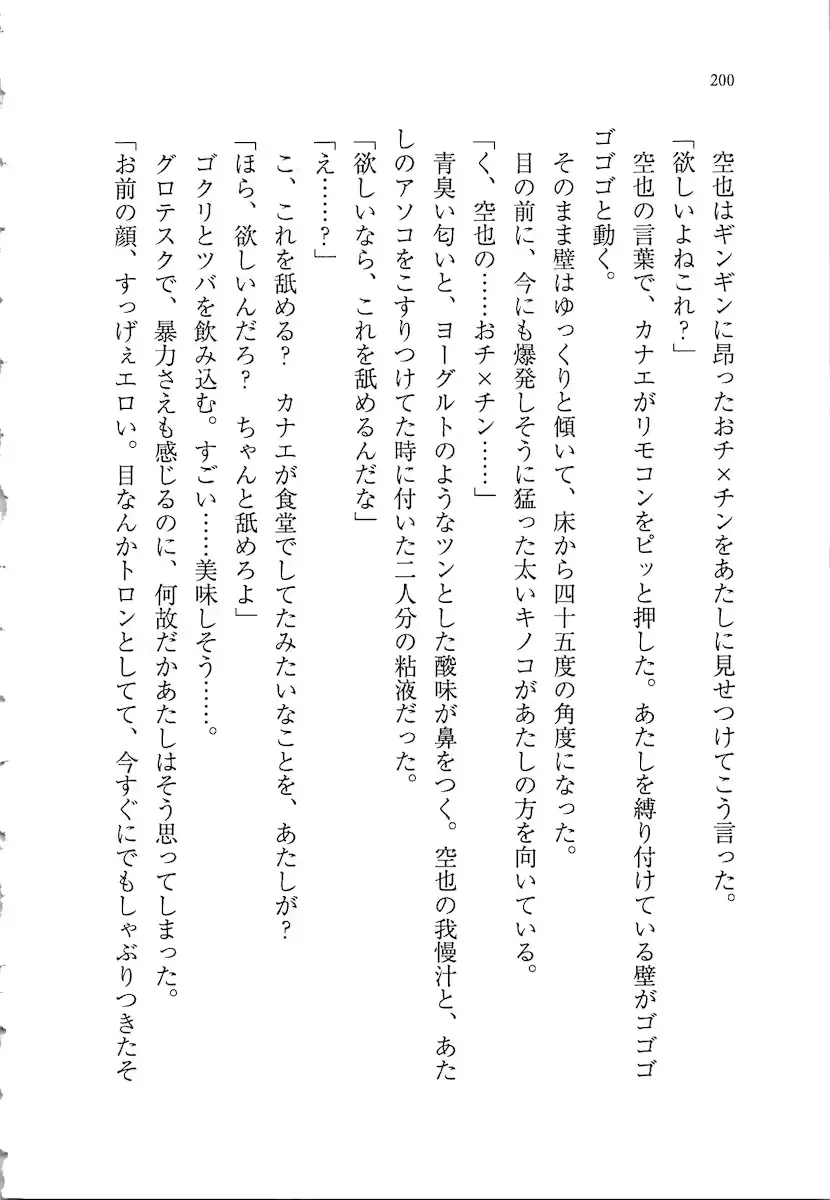 200
空也はギンギンに昂ったおチ×チンをあたしに見せつけてこう言った。
「欲しいよねこれ?」
空也の言葉で、カナエがリモコンをピッと押した。あたしを縛り付けている壁がゴゴゴ
ゴゴゴと動く。
そのまま壁はゆっくりと傾いて、床から四十五度の角度になった。
目の前に、今にも爆発しそうに猛った太いキノコがあたしの方を向いている。
「く、空也の……おチ×チン……」
青臭い匂いと、ヨーグルトのようなツンとした酸味が鼻をつく。空也の我慢汁と、あた
しのアソコをこすりつけてた時に付いた二人分の粘液だった。
「欲しいなら、これを舐めるんだな」
「え……?」
こ、これを舐める? カナエが食堂でしてたみたいなことを、あたしが?
「ほら、欲しいんだろ? ちゃんと舐めろよ」
ゴクリとツバを飲み込む。すごい……美味しそう……。
グロテスクで、暴力さえも感じるのに、何故だかあたしはそう思ってしまった。
「お前の顔、すっげぇエロい。目なんかトロンとしてて、今すぐにでもしゃぶりつきたそ